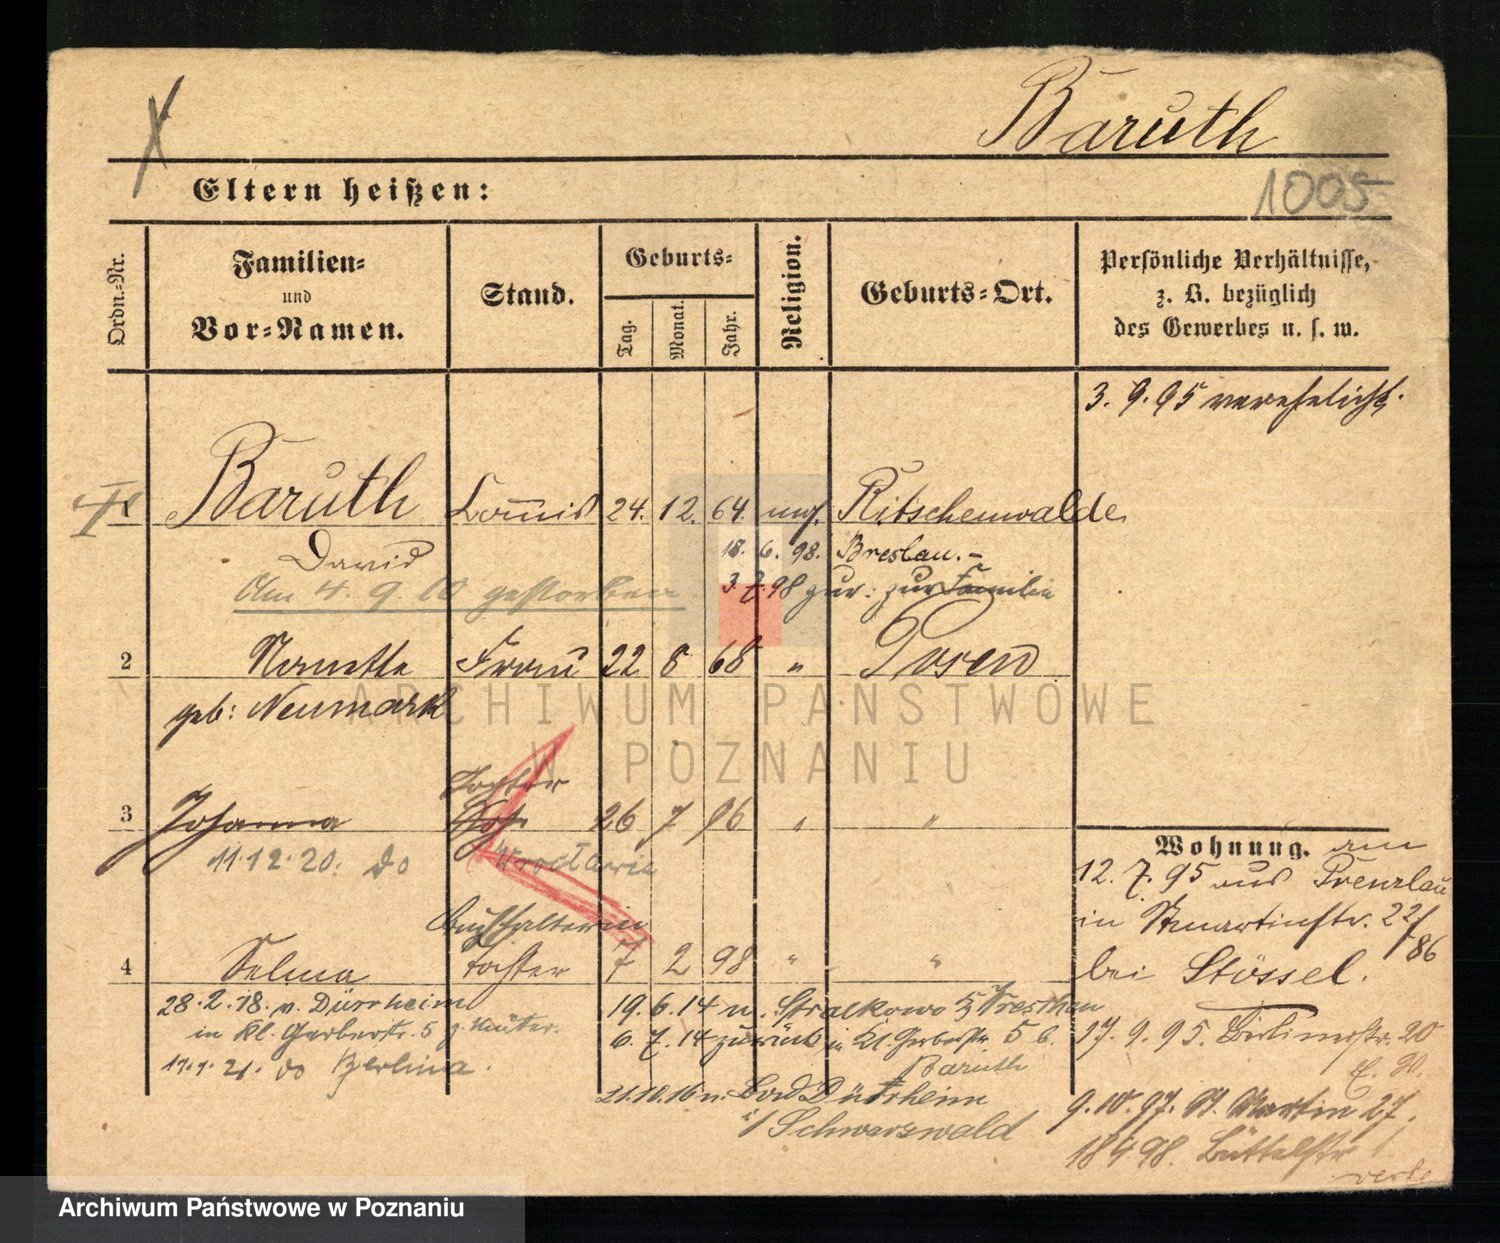 Baruth
1005
Eltern heißen:
Ordn.-Nr.
Familien-
und
Vor-Namen.
Stand.
Geburts-
Tag.
Monat.
Jahr.
Religion.
Geburts-Ort.
Persönliche Verhältnisse,
z. B. bezüglich
des Gewerbes u. s. w.
3. 9. 95 verehelicht.
Baruth Commis 24. 12. 64. mos. Ritschenwalde
David
18. 6. 98. Breslau.-
Am 4. 9. 10 gestorben
3. 7. 98 zur: zur Familie
2 Nanette Frau 22 8 68 " Posen
geb: Neumark
ARCHIWUM PAŃSTWOWE
W POZNANIU
Tochter
3 Johanna 26 7 96 " "
11.12.20. do Wrocławia
Buchhalterin
4 Selma Tochter 7 2 98 " "
28.2.18. v. Dürrheim
in Kl. Gerberstr. 5 z. Mutter.
17.1.21. do Berlina.
19.6.14 n. Stralkowo Wreschen
6.7.14 zurück in Kl. Gerberstr. 5 b.
Baruth
21.10.16 n. Bad Dürrheim
i/ Schwarzwald
Wohnung. am
12. 7. 95 aus Prenzlau
in St Martinstr. 22/
86
bei Stössel.
27. 9. 95. Berlinerstr. 20
9. 10. 97. St. Martin 27.
18 4 98. Büttelstr
Archiwum Państwowe w Poznaniu